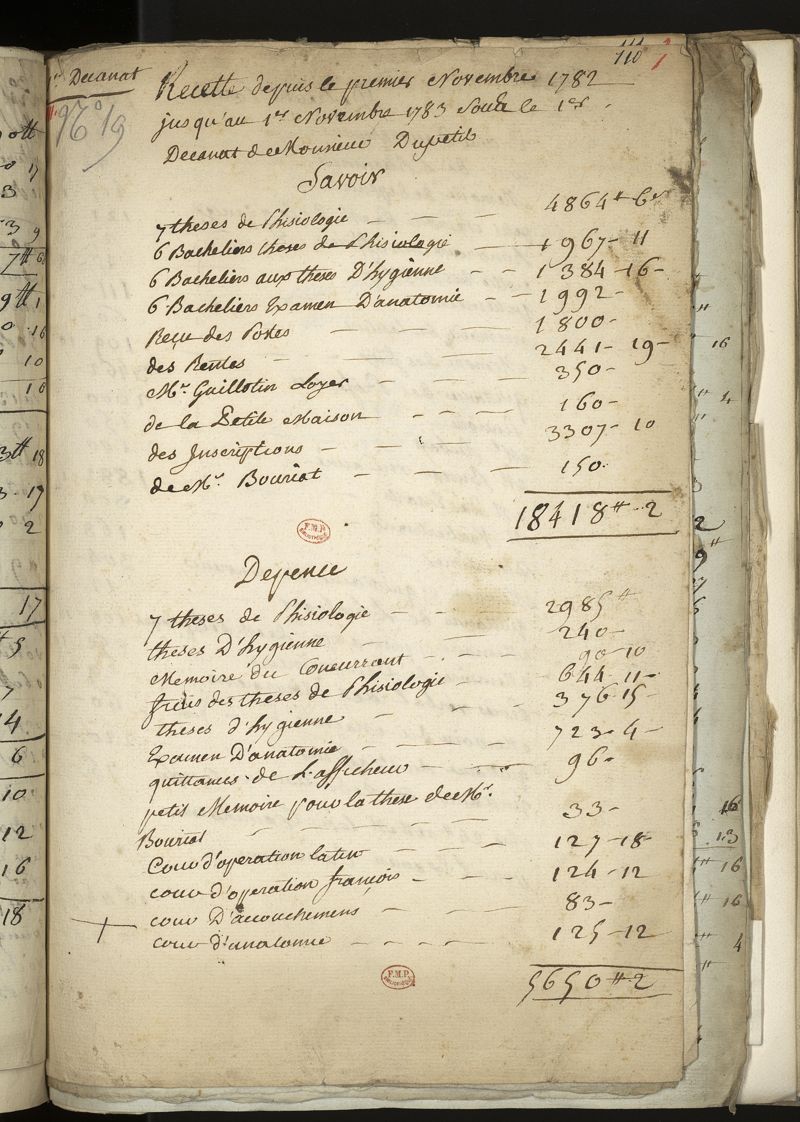 Decanat
111
110
Recette depuis le premier Novembre 1782
jusqu'au 1er Novembre 1783 Sous le 1er
Decanat de Monsieur Dupetit
Savoir
7 theses de Phisiologie — — — 4864 ₶ 6 s
6 Bacheliers theses de Phisiologie — 1967 - 11
6 Bacheliers aux theses D'hygienne - - 1384 - 16 -
6 Bacheliers Examen D'anatomie - - 1992 -
Reçu des Postes — — — 1800 -
des Rentes - — — 2441 - 19 -
Mr. Guillotin Loyer - — — 350 -
de la Petite Maison - - — 160 -
des Inscriptions - — — 3307 - 10
de Mr. Bouriat — — — 150.
18418 ₶ - 2
F.M.P.
Depence
7 theses de Phisiologie - — - 2985 ₶
theses D'hygienne - — 240 -
Memoire du Concurrant - - — 90 - 10
frais des theses de Phisiologie - 644 - 11 -
theses d'hygienne - — 376 - 15 -
Examen D'anatomie - — — 723 - 4 -
quittances de L'afficheur — — 96 -
petit Memoire pour la these de Mr.
Bouriat - — — 33 -
Cour d'operation latin — - - 127 - 18 -
cour d'operation françois - — - 124 - 12
cour D'accouchemens - — 83 -
cour d'anatomie — - - - 125 - 12
F.M.P.
5650 ₶ 2